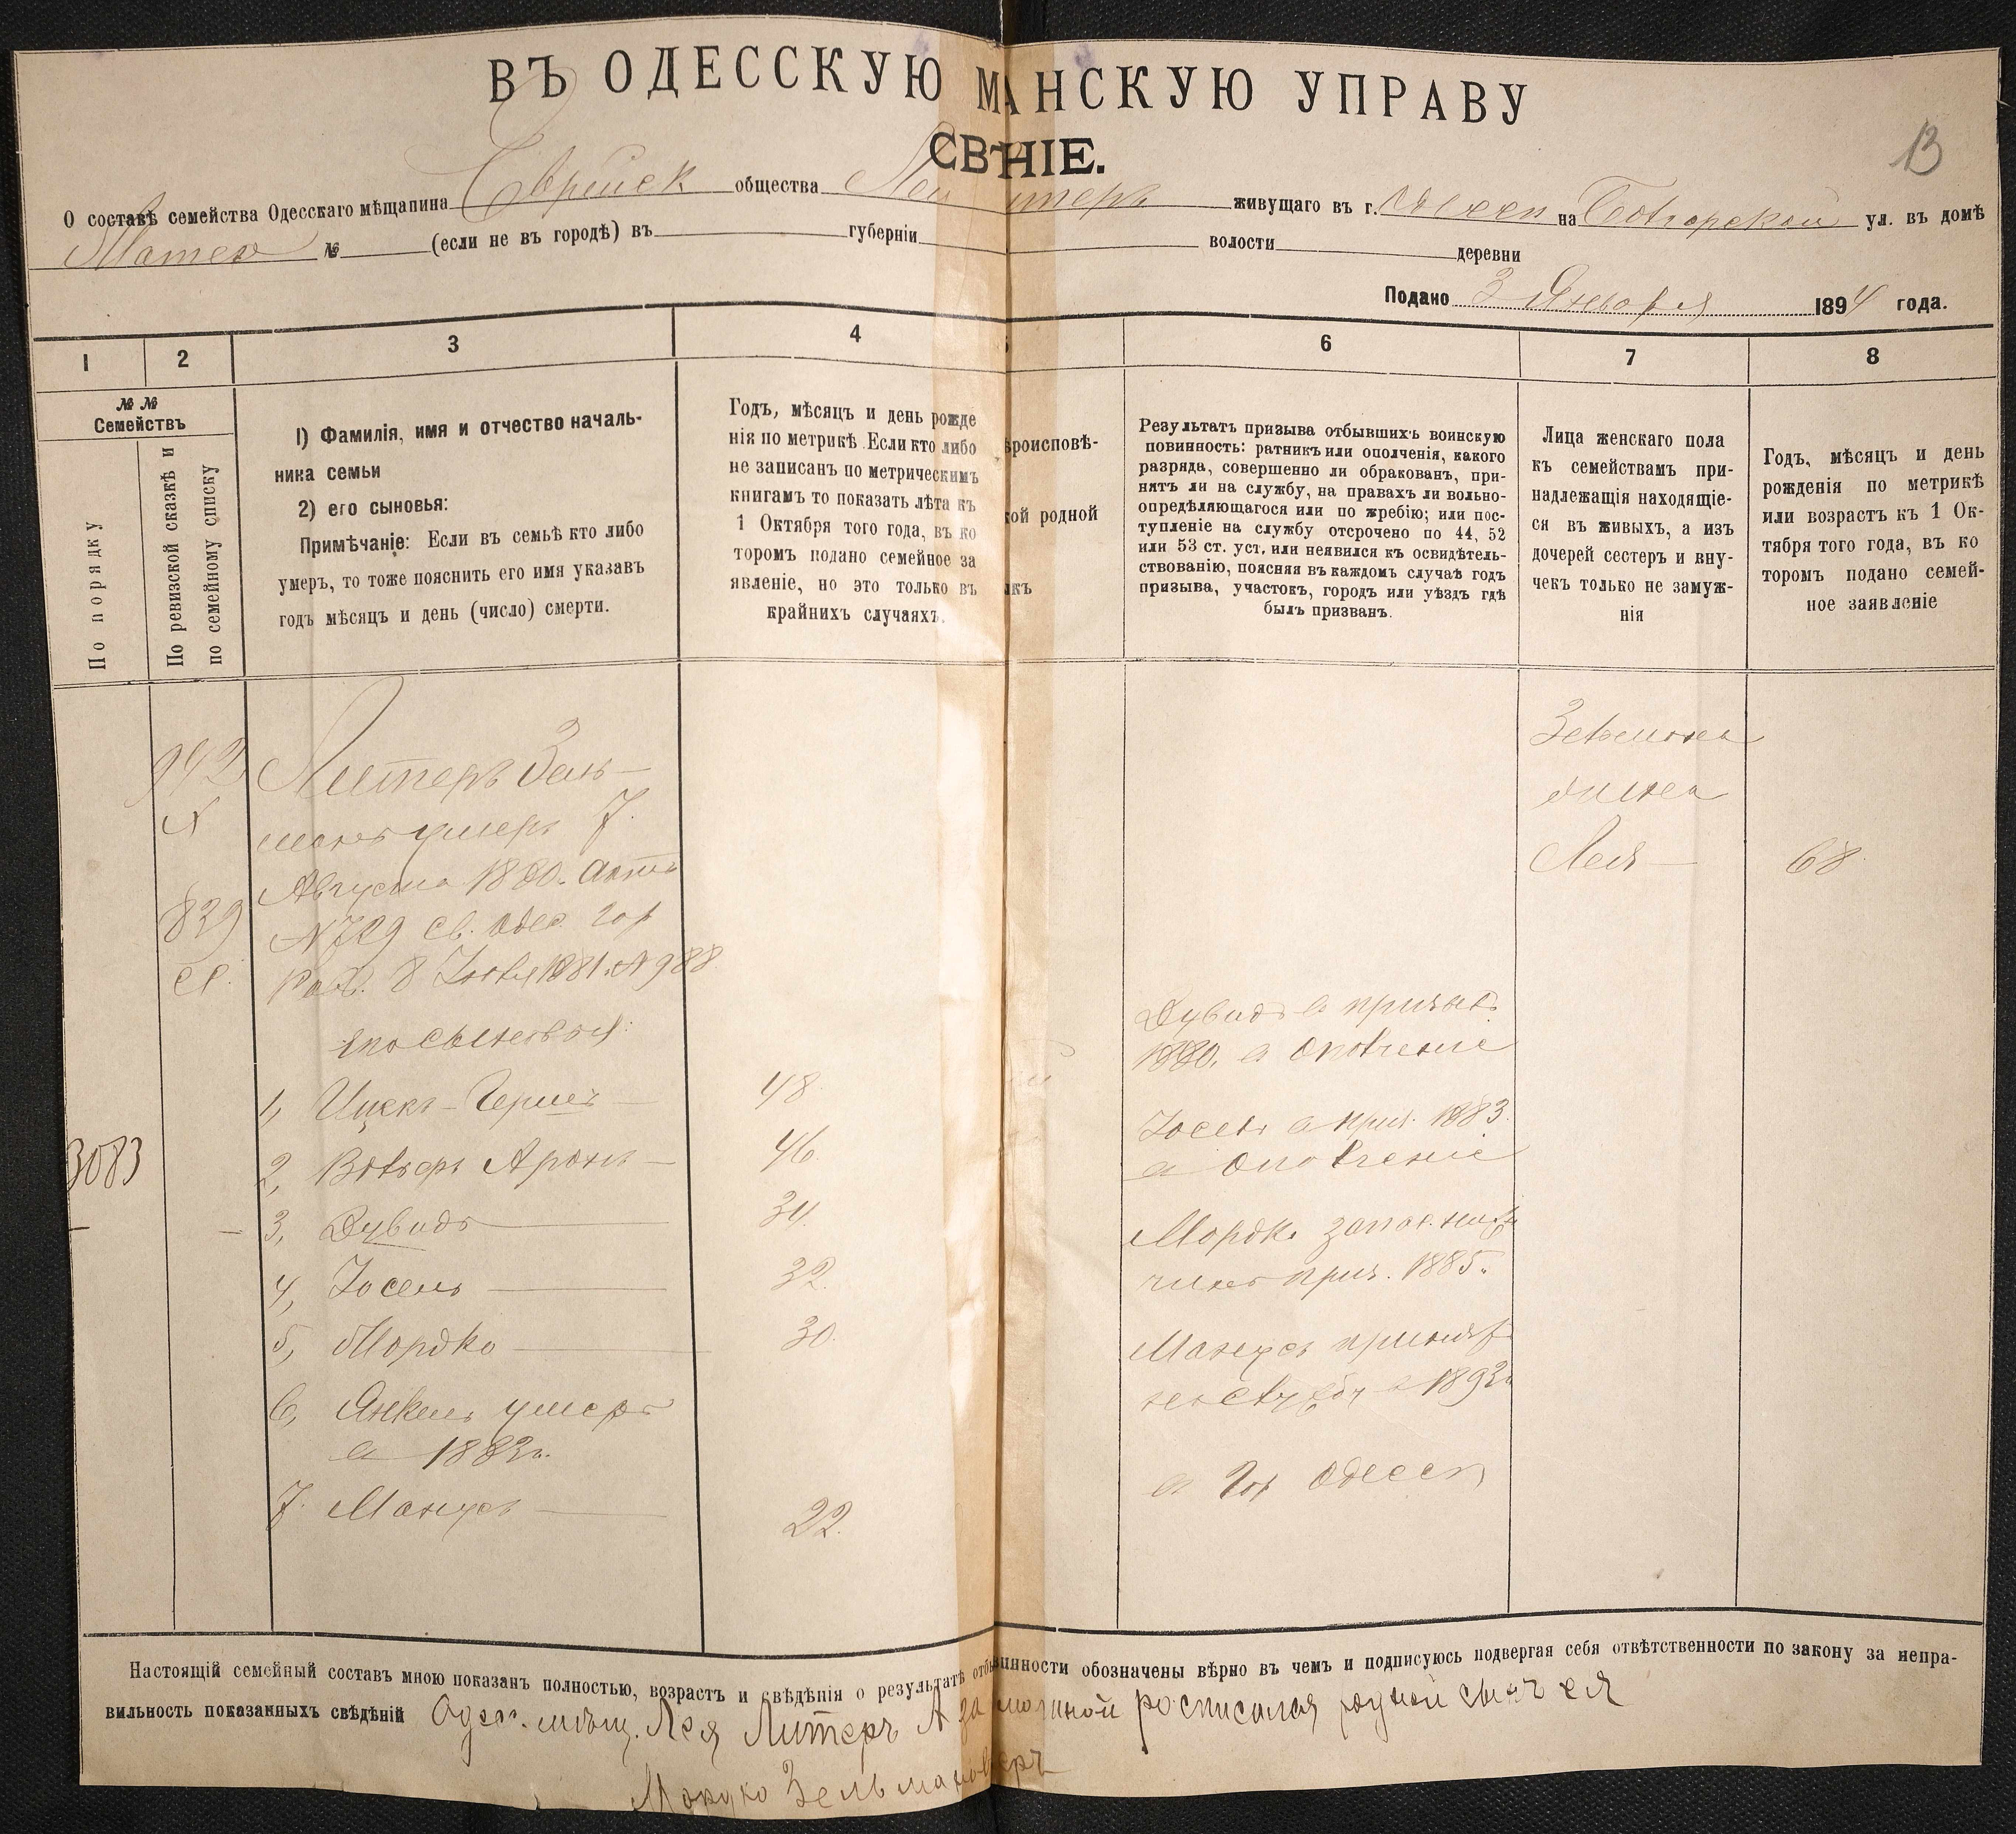 ВЪ ОДЕССКУЮ М АНСКУЮ УПРАВУ
СВ НІЕ.
13
О составѣ семейства Одесскаго мѣщанина Еврейск общества Леи итеръ живущаго въ г. Одессѣ на Болгарской ул. въ домѣ
№ (если не въ городѣ) въ губерніи волости деревни
Подано 3 Января 1894 года.
1 2 3 4 6 7 8
№ №
Семействъ
По порядку
По ревизской сказкѣ и
по семейному списку
1) Фамилія, имя и отчество началь-
ника семьи
2) его сыновья:
Примѣчаніе: Если въ семьѣ кто либо
умеръ, то тоже пояснить его имя указавъ
годъ мѣсяцъ и день (число) смерти.
Годъ, мѣсяцъ и день рожде
нія по метрикѣ. Если кто либо
не записанъ по метрическимъ
книгамъ то показать лѣта къ
1 Октября того года, въ ко
торомъ подано семейное за
явленіе, но это только въ
крайнихъ случаяхъ.
ѣроисповѣ-
кой родной
Результатъ призыва отбывшихъ воинскую
повинность: ратникъ или ополченія, какого
разряда, совершенно ли обракованъ, при-
нятъ ли на службу, на правахъ ли вольно-
опредѣляющагося или по жребію; или пос-
тупленіе на службу отсрочено по 44, 52
или 53 ст. уст. или неявился къ освидѣтель-
ствованію, поясняя въ каждомъ случаѣ годъ
призыва, участокъ, городъ или уѣздъ гдѣ
былъ призванъ.
Лица женскаго пола
къ семействамъ при-
надлежащія находящіе-
ся въ живыхъ, а изъ
дочерей сестеръ и вну-
чекъ только не замуж-
нія
Годъ, мѣсяцъ и день
рожденія по метрикѣ
или возрастъ къ 1 Ок-
тября того года, въ ко
торомъ подано семей-
ное заявленіе
942
839
3083
Литеръ Зель-
манъ умеръ 7
Августа 1880. актъ
N729 св. Одес. гор
Рав. 8 1881. N988
1, Ицекъ-Гершъ 48
2, Вольфъ Аронъ 46
3, Дувидъ 34
4, Іосель 32
5, Мордко 30
6, Янкель умеръ
в 1883г.
7. Манусъ 22
Дувидъ в призыв.
1880. в ополченіе
Іосель в приз. 1883
в ополченіе
Мордк. запасный
чинъ приз. 1885.
Манусъ принят
на службу в 1893г
в гор Одессѣ
Зельмана
жена
Лея 68
Настоящій семейный составъ мною показанъ полностью, возрастъ и свѣдѣнія о результатѣ отбы инности обозначены вѣрно въ чемъ и подписуюсь подвергая себя отвѣтственности по закону за непра-
вильность показанныхъ свѣдѣній Одес. мѣщ. Лея Литеръ А за росписался родной сынъ ея
Мордко Зельманов